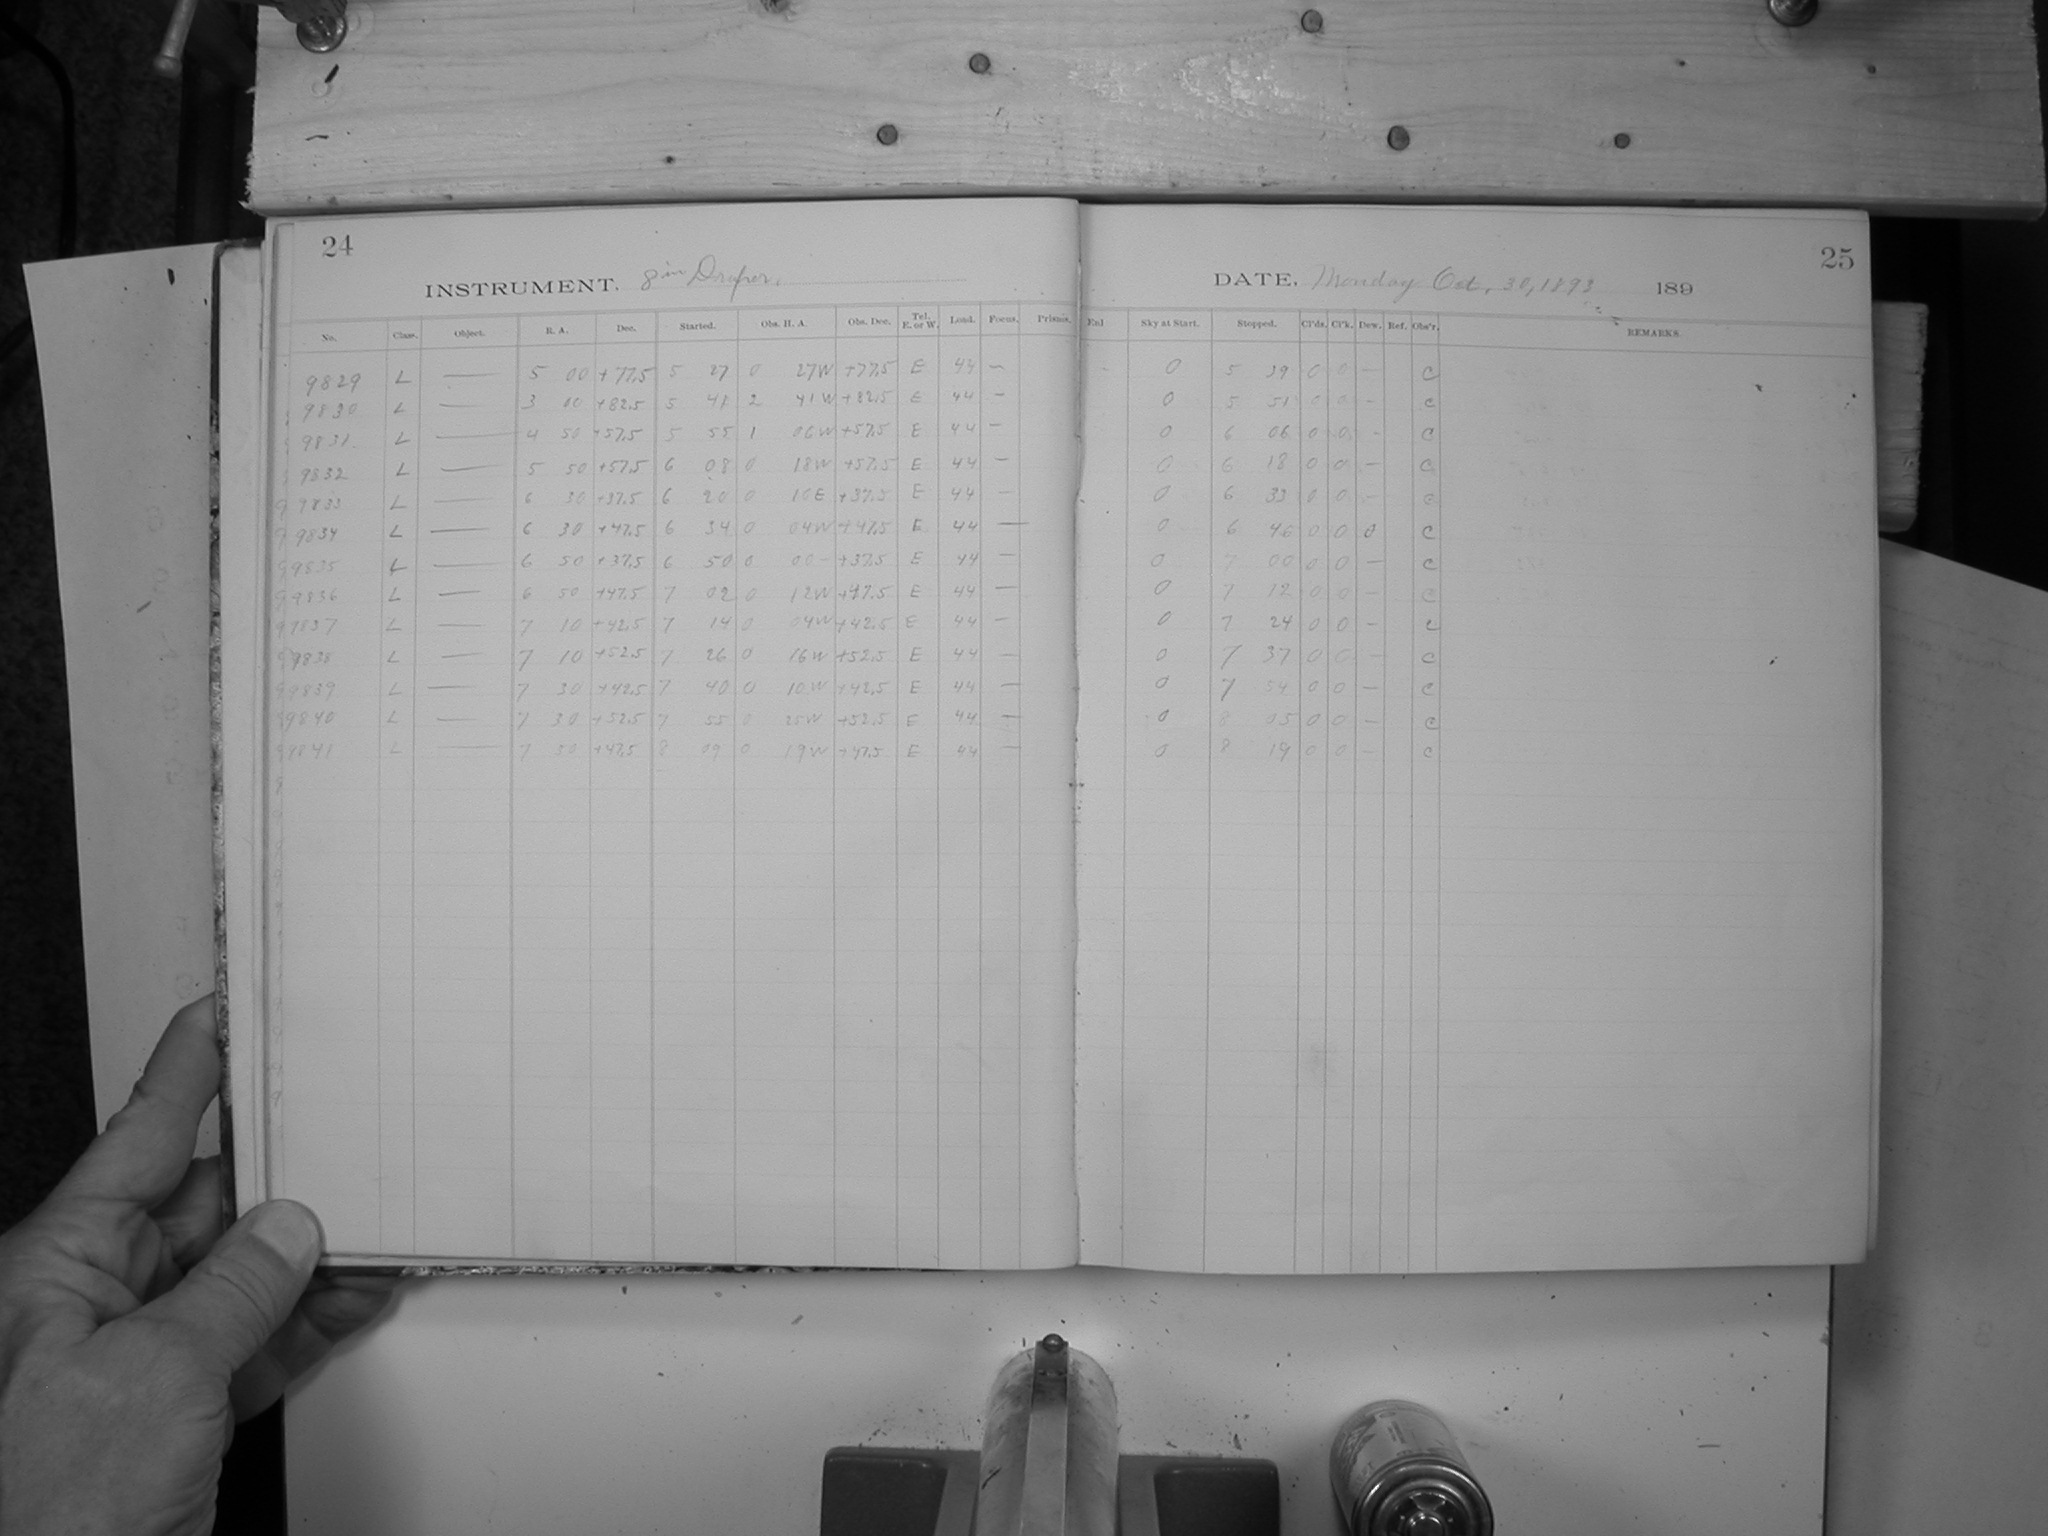 24
25
INSTRUMENT. 8in Draper.
DATE. Monday Oct. 30, 1893 189
No. Class. Object. R. A. Dec. Started. Obs. H. A. Obs. Dec. Tel. E. or W. Load. Focus. Prisms. Enl Sky at Start. Stopped. Cl'ds. Cl'k. Dew. Ref. Obs'r. REMARKS.
9829 L — 5 00 +77.5 5 27 0 27W +77.5 E 44 — 0 5 39 0 0 — C
9830 L — 3 00 +82.5 5 41 2 41W +82.5 E 44 — 0 5 51 0 0 — C
9831 L — 4 50 +57.5 5 55 1 06W +57.5 E 44 — 0 6 06 0 0 — C
9832 L — 5 50 +57.5 6 08 0 18W +57.5 E 44 — 0 6 18 0 0 — C
9833 L — 6 30 +37.5 6 20 0 10E +37.5 E 44 — 0 6 33 0 0 — C
9834 L — 6 30 +47.5 6 34 0 04W +47.5 E 44 — 0 6 46 0 0 0 C
9835 L — 6 50 +37.5 6 50 0 00 — +37.5 E 44 — 0 7 00 0 0 — C
9836 L — 6 50 +47.5 7 02 0 12W +47.5 E 44 — 0 7 12 0 0 — C
9837 L — 7 10 +42.5 7 14 0 04W +42.5 E 44 — 0 7 24 0 0 — C
9838 L — 7 10 +52.5 7 26 0 16W +52.5 E 44 — 0 7 37 0 0 — C
9839 L — 7 30 +42.5 7 40 0 10W +42.5 E 44 — 0 7 54 0 0 — C
9840 L — 7 30 +52.5 7 55 0 25W +52.5 E 44 — 0 8 05 0 0 — C
9841 L — 7 50 +47.5 8 09 0 19W +47.5 E 44 — 0 8 19 0 0 — C